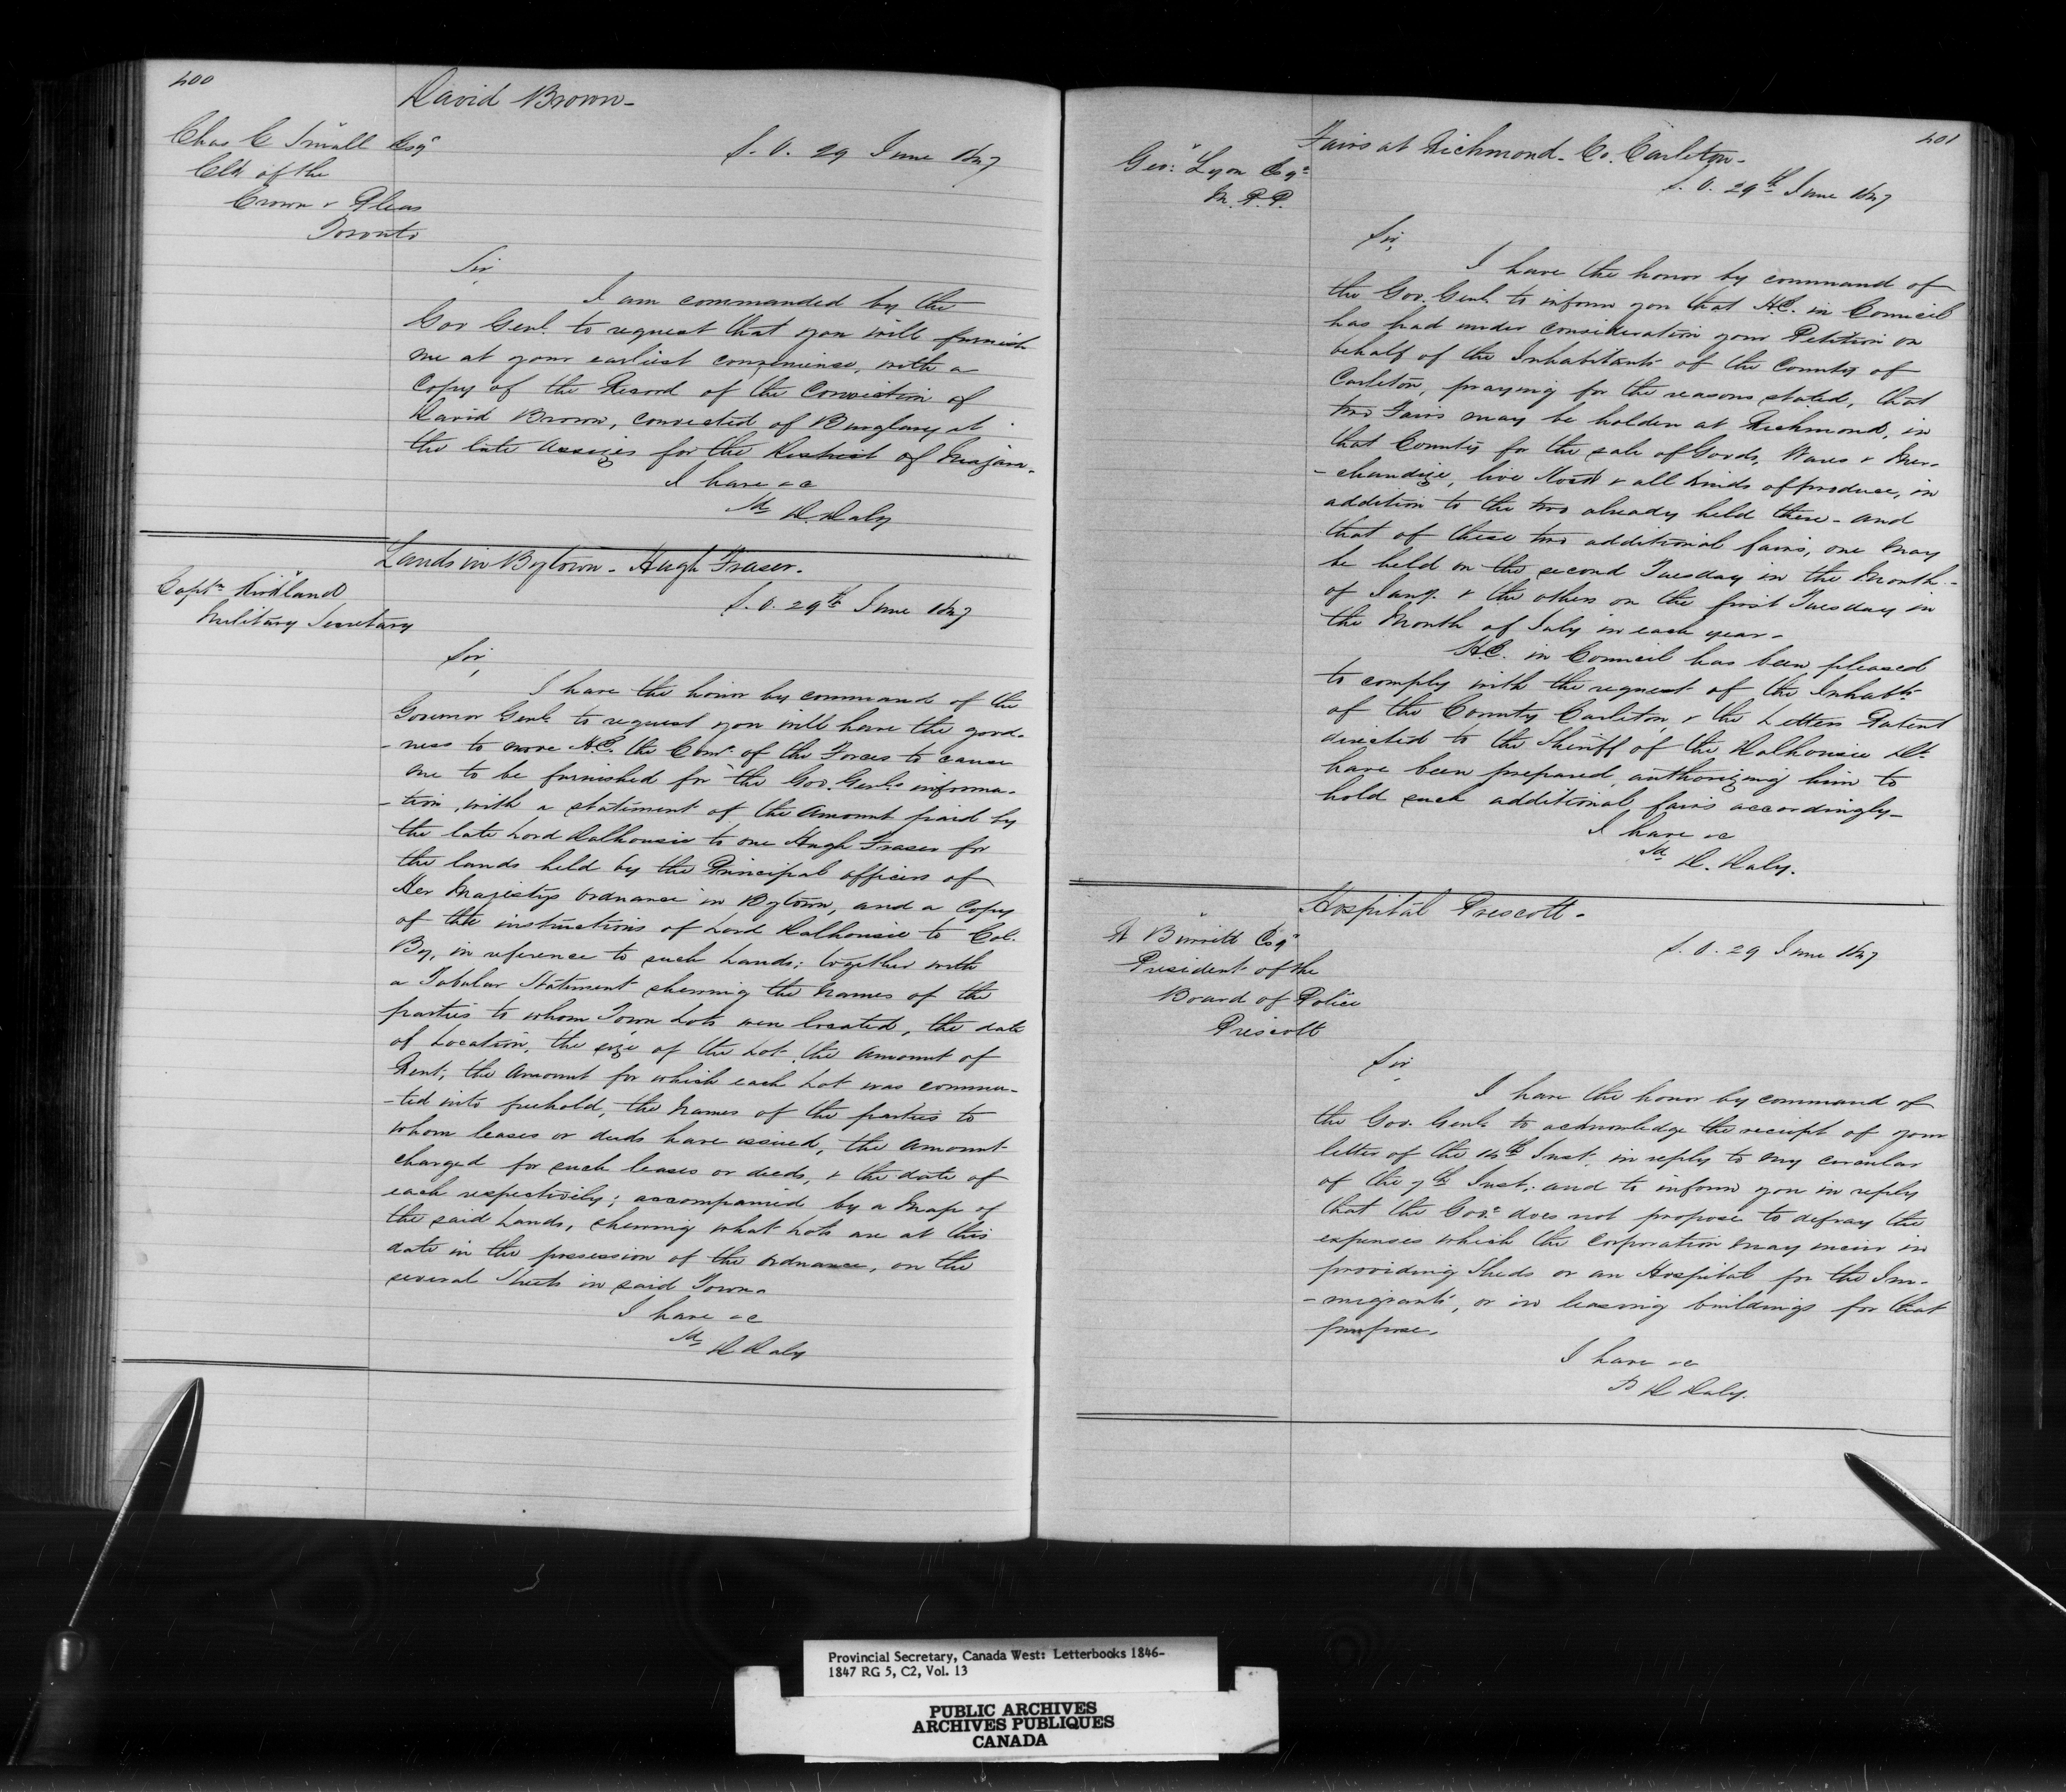 400
David Brown-
Chas C Small Esqr
Clk of the
Crown & Pleas
Toronto
S. O. 29 June 1847
Sir,
I am commanded by the
Gov Genl. to request that you will furnish
me at your earliest convenience, with a
Copy of the Record of the Conviction of
David Brown, convicted of Burglary at
the late Assizes for the District of Niagara.
I have &c
Sd D. Daly
Lands in Bytown - Hugh Fraser.
Captn Kirkland
Military Secretary
S. O. 29th June 1847
Sir,
I have the honor by command of the
Governor Genl. to request you will have the good-
-ness to move H.E. the Comr. of the Forces to cause
me to be furnished for the Gov. Genl.s informa-
-tion, with a statement of the amount paid by
the late Lord Dalhousie to one Hugh Fraser for
the lands held by the Principal officers of
Her Majestys Ordnance in Bytown, and a Copy
of the instructions of Lord Dalhousie to Col.
By, in reference to such Lands; together with
a Tabular Statement shewing the Names of the
parties to whom Town Lots were located, the date
of Location, the size of the Lot, the amount of
Rent, the Amount for which each Lot was commu-
-ted into freehold, the Names of the parties to
whom leases or deeds have issued, the amount
charged for such leases or deeds, & the date of
each respectively; accompanied by a Map of
the said Lands, shewing what Lots are at this
date in the possession of the Ordnance, on the
several Streets in said Town.
I have &c
Sd D Daly
401
Fairs at Richmond - Co. Carleton-
Geo: Lyon Esqr
M. P. P.
S. O. 29th June 1847
Sir,
I have the honor by command of
the Gov. Genl. to inform you that H.E. in Council
has had under consideration your Petition on
behalf of the Inhabitants of the County of
Carleton, praying for the reasons stated, that
two Fairs may be holden at Richmond, in
that County for the sale of Goods, Wares & Mer-
-chandize, live Stock & all kinds of produce, in
addition to the two already held there - and
that of these two additional fairs, one may
be held on the second Tuesday in the Month
of Jany. & the others on the first Tuesday in
the Month of July in each year-
H.E. in Council has been pleased
to comply with the request of the Inhabts
of the County Carleton, & the Letters Patent
directed to the Sheriff of the Dalhousie Dt.
have been prepared, authorizing him to
hold such additional fairs accordingly-
I have &c
Sd D. Daly.
Hospital Prescott-
A Burritt Esqr
President of the
Board of Police
Prescott
S. O. 29 June 1847
Sir
I have the honor by command of
the Gov. Genl. to acknowledge the receipt of your
letter of the 14th Inst. in reply to my circular
of the 7th Inst. and to inform you in reply
that the Govt. does not propose to defray the
expenses which the Corporation may incur in
providing Sheds or an Hospital for the Im-
-migrants, or in leasing buildings for that
purpose.
I have &c
D Daly.
Provincial Secretary, Canada West: Letterbooks 1846-
1847 RG 5, C2, Vol. 13
PUBLIC ARCHIVES
ARCHIVES PUBLIQUES
CANADA